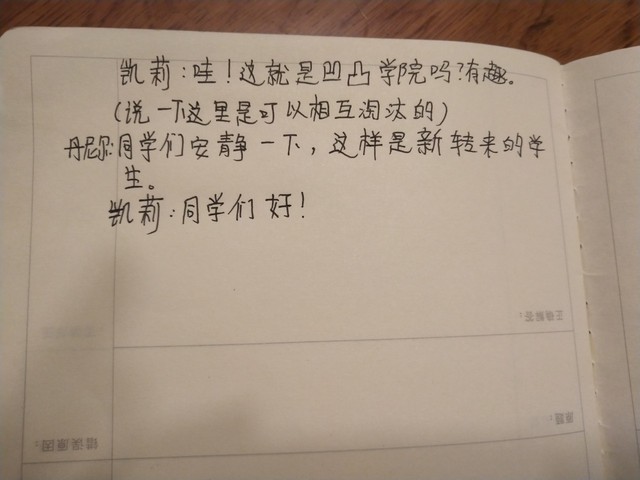 凯莉:哇!这就是凹凸学院吗?有趣。
(说一下这里是可以相互淘汰的)
丹尼尔:同学们安静一下,这样是新转来的学
生。
凯莉:同学们好!
正确解答:
原题:
错误原因: